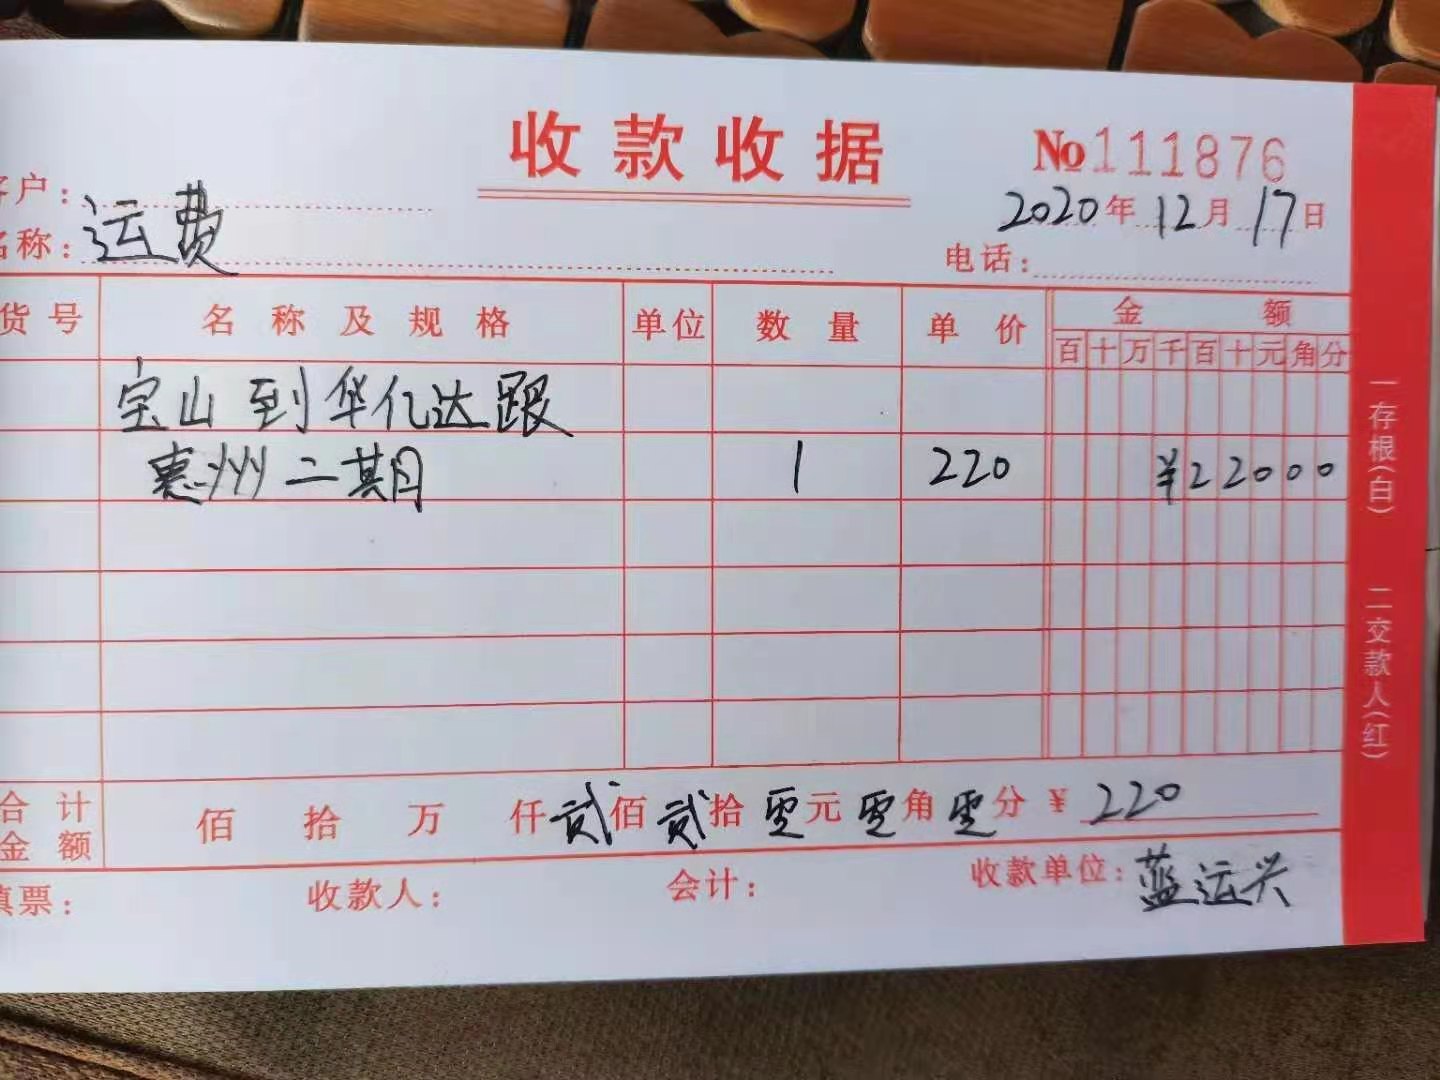 收款收据
№111876
2020年12月17日
客户：
名称：运费
电话：
货号 名称及规格 单位 数量 单价 金额
百十万千百十元角分
宝山到华亿达跟
惠州二期 1 220 ¥22000
合计金额 佰 拾 万 仟贰佰贰拾零元零角零分 ¥220
填票： 收款人： 会计： 收款单位：蓝运兴
一存根(白) 二交款人(红)